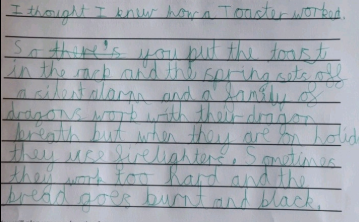 I thought I knew how a Toaster worked.
So there's you put the toast
in the rack and the spring sets off
a silent alarm and a family of
dragons work with their dragon
breath but when they are on holid
they use firelighters. Sometimes
they work too hard and the
bread goes burnt and black.